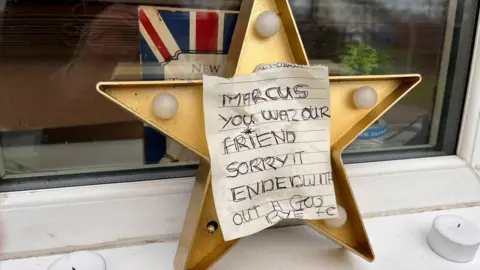 NEW
MARCUS
YOU WAZ OUR
FRIEND
SORRY IT
ENDED WITH
OUT A GOO
BYE